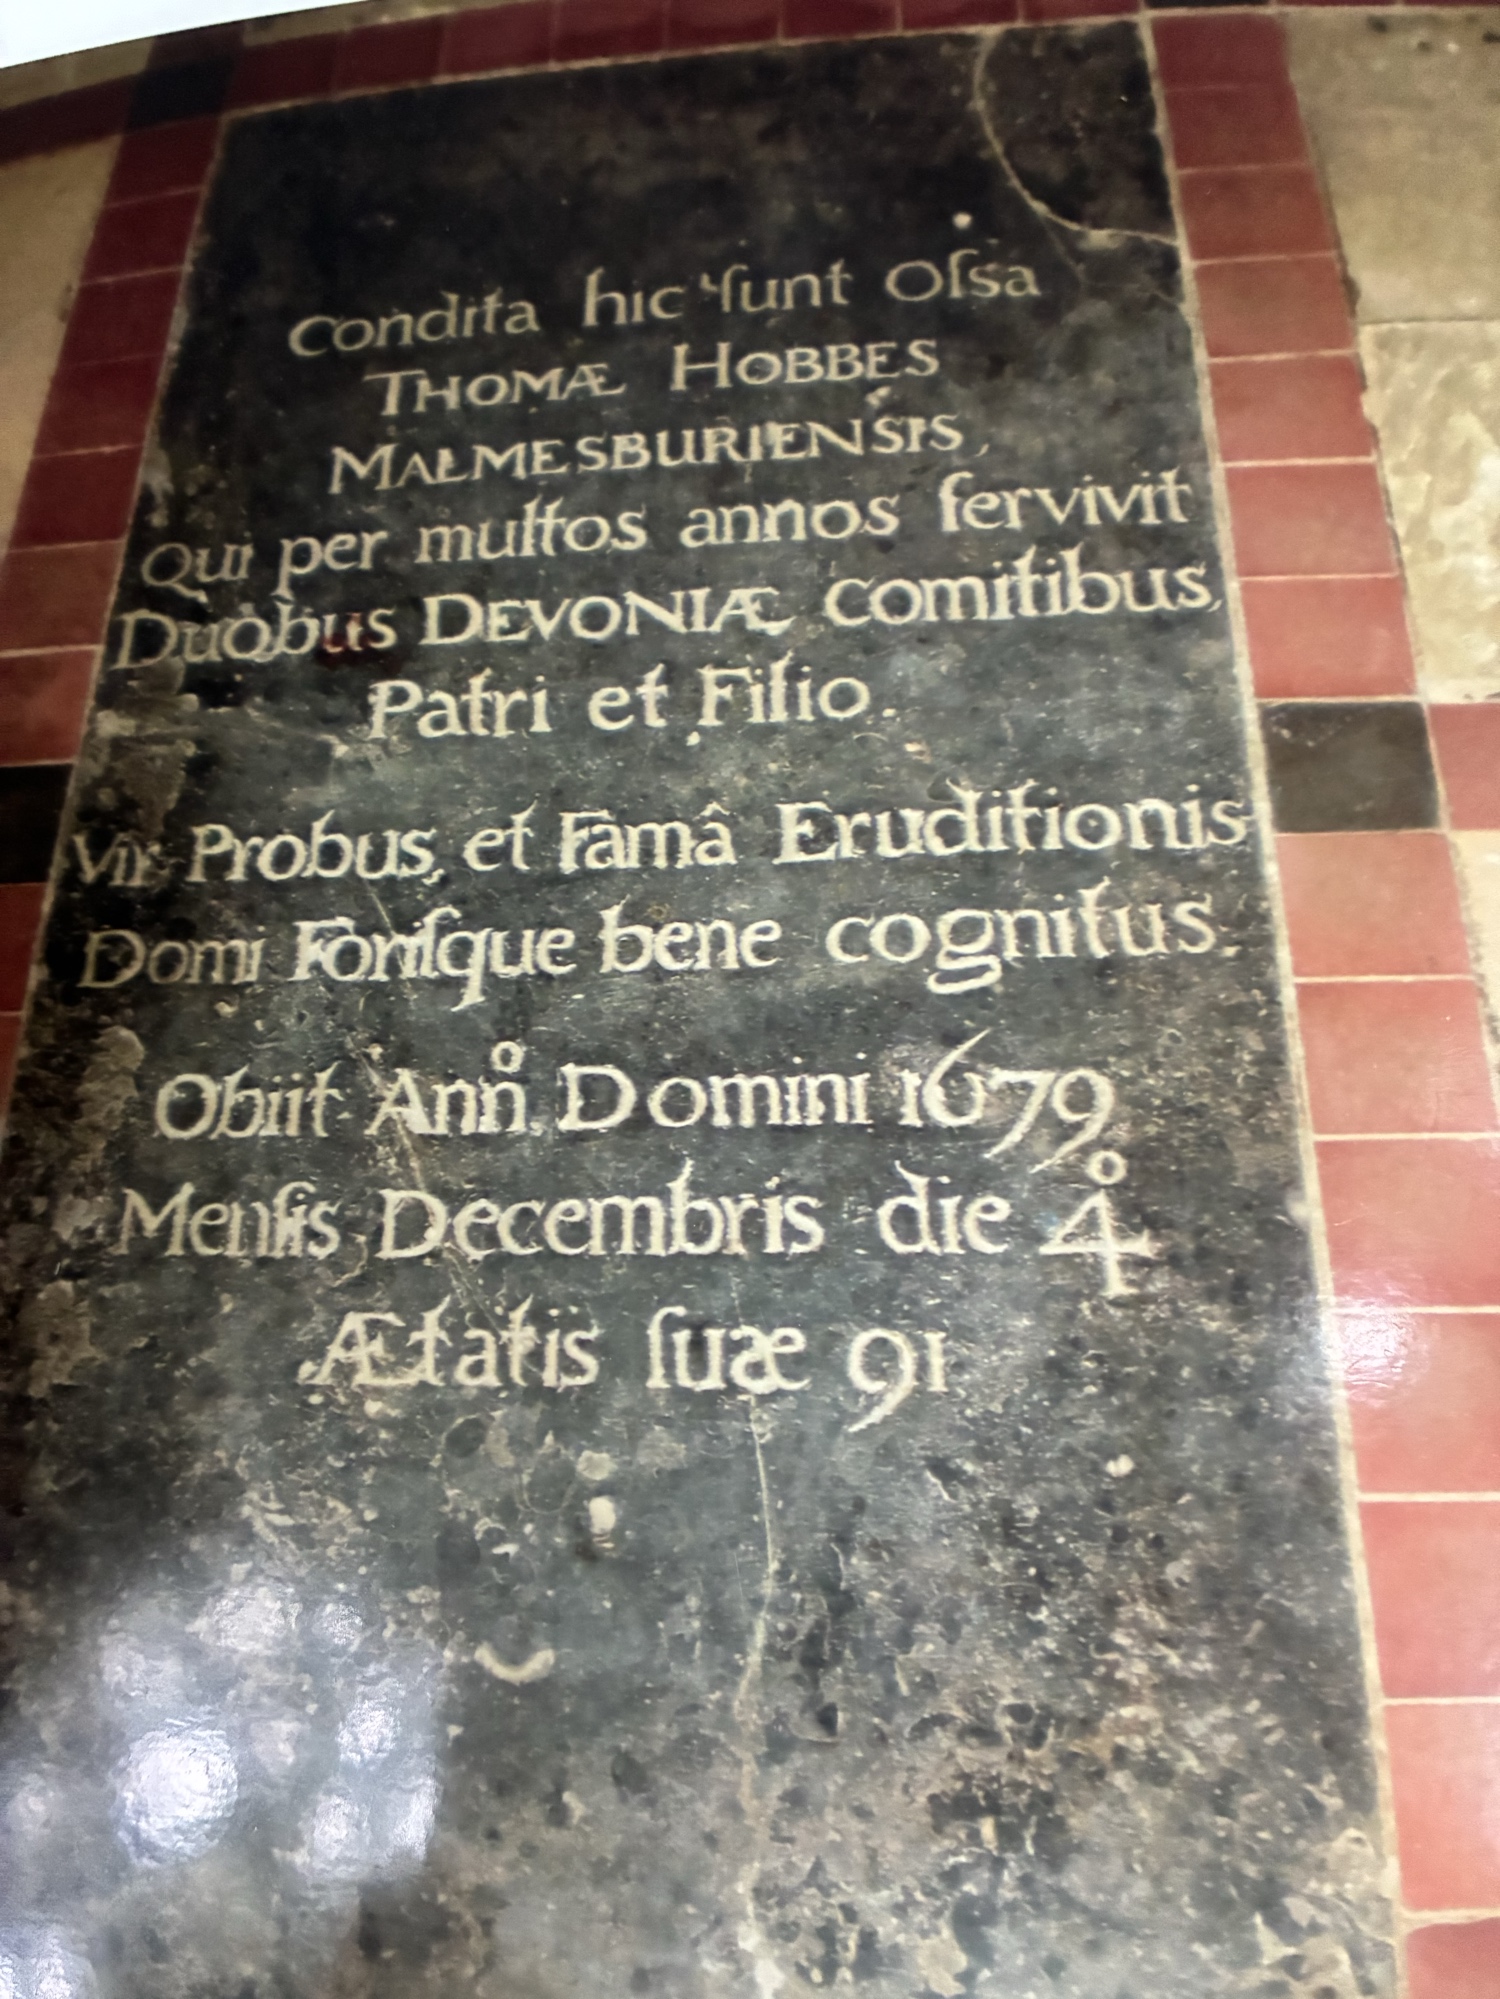 Condita hic ſunt Oſsa
THOMÆ HOBBES
MALMESBURIENSIS,
Qui per multos annos ſervivit
Duobus DEVONIÆ Comitibus,
Patri et Filio.
Vir Probus, et Famâ Eruditionis
Domi Foriſque bene cognitus.
Obiit Anno Domini 1679
Menſis Decembris die 4º
Ætatis ſuæ 91